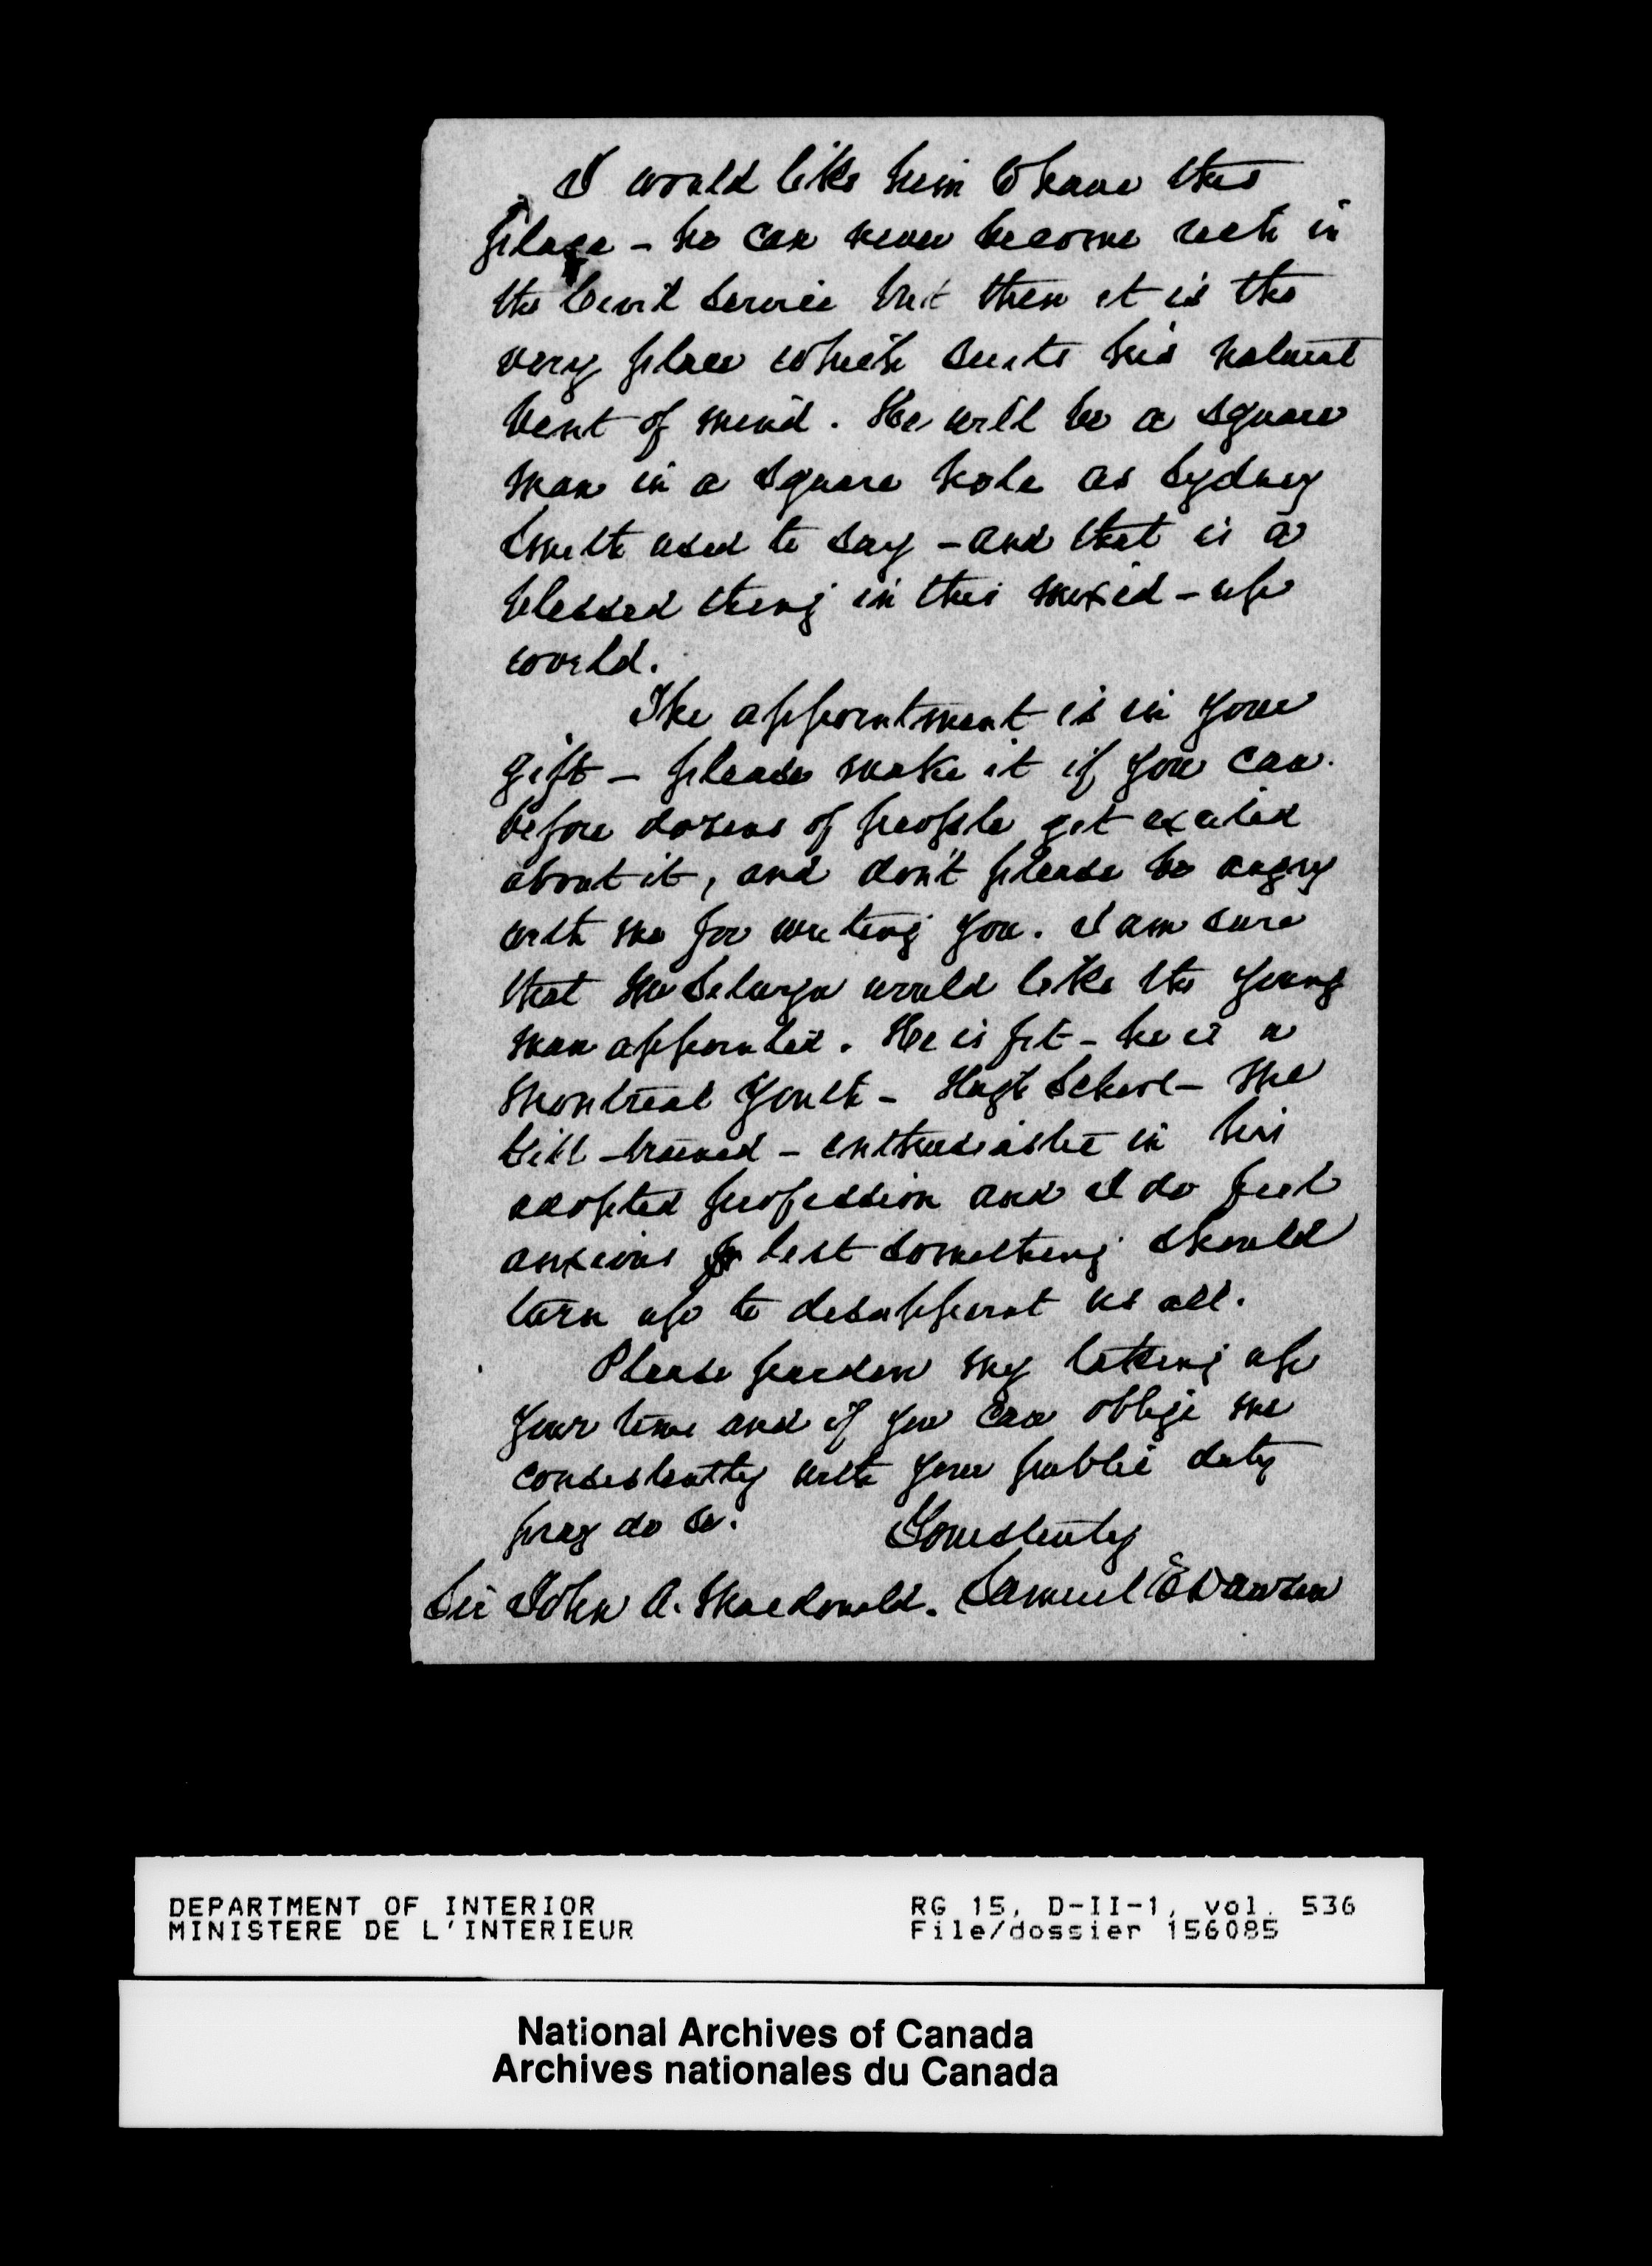 I would like him to have this
place - he can never become rich in
the Civil Service but then it is the
very place which suits his natural
bent of mind. He will be a square
man in a square hole as Sydney
Smith used to say - and that is a
blessed thing in this mixed-up
world.
The appointment is in your
gift - please make it if you can
before dozens of people get excited
about it, and don't please be angry
with me for writing you. I am sure
that Mr Selwyn would like the young
man appointed. He is fit - he is a
Montreal Youth - High School - Mc
Gill - trained - enthusiastic in his
adopted profession and I do feel
anxious lest something should
turn up to disappoint us all.
Please pardon my taking up
your time and if you can oblige me
consistently with your public duty
pray do so. Yours truly
Sir John A. Macdonald. Samuel E Dawson
DEPARTMENT OF INTERIOR RG 15, D-II-1, vol. 536
MINISTERE DE L'INTERIEUR File/dossier 156085
National Archives of Canada
Archives nationales du Canada